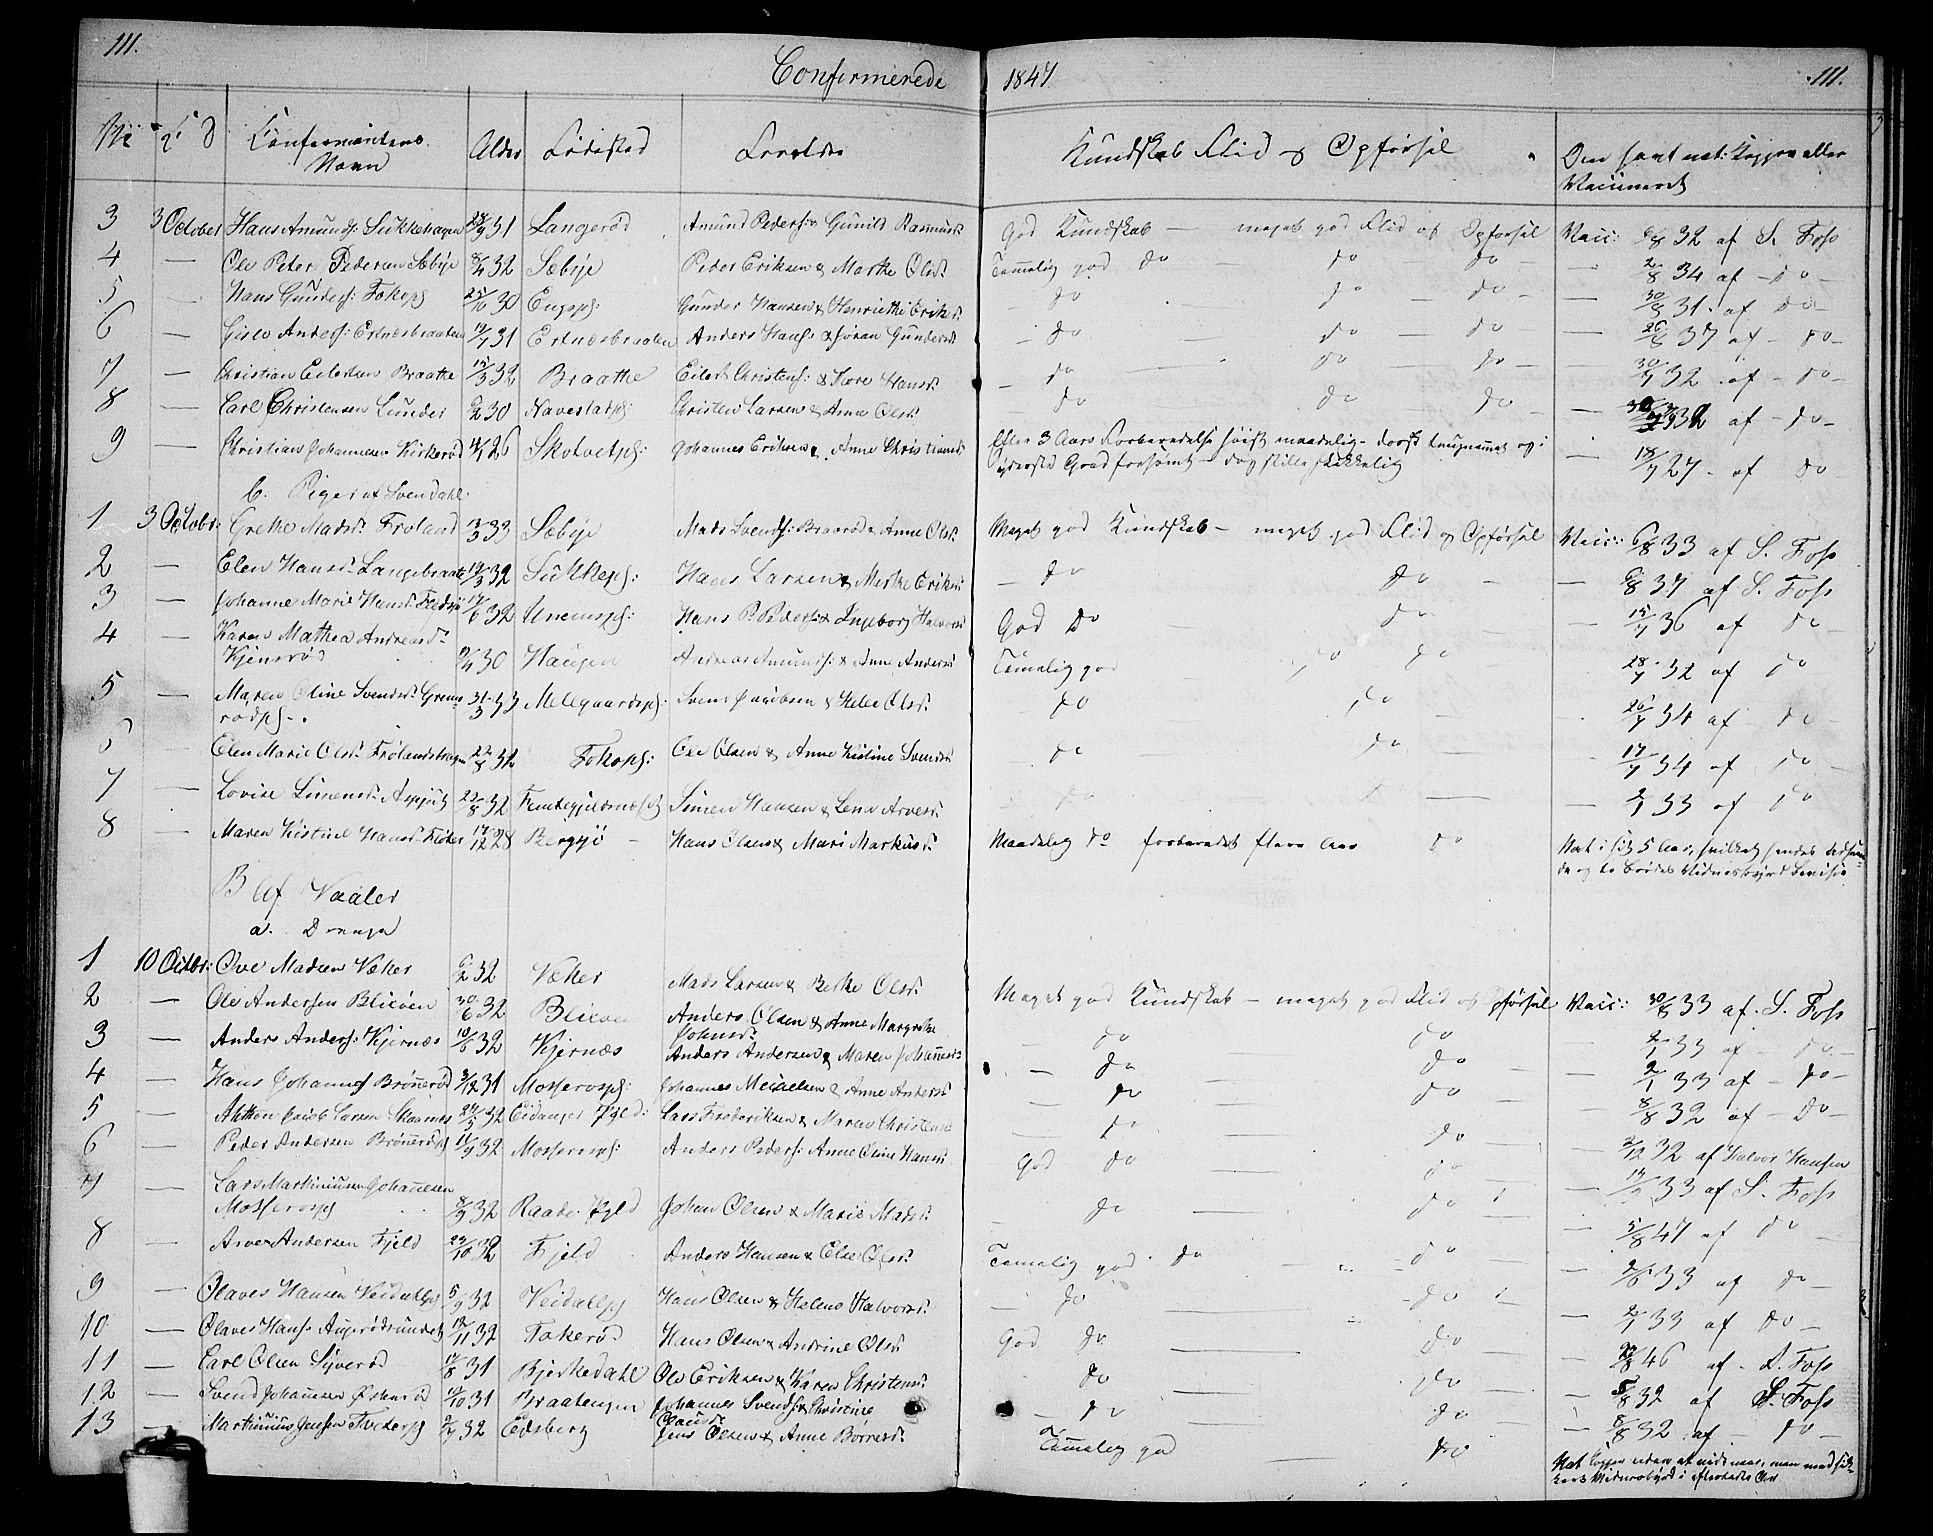 111.
Confirmerede
1847
111.
No
Confirmantens Navn
Alder
Fødested
Forældre
Kundskab Flid og Opførsel
Den havt nat: Kopper eller Vaccineret
3 3 October Hans Amunds: Sukkehagen 31 Langerød Amund Peders: & Gunild Rasmusd: God Kundskab — meget god Flid og Opførsel Vacc: 6/8 32 af S. Foss
4 — Ole Peter Pedersen Sæbye 8/4 32 Sæbye Peder Eriksen & Marthe Olsd: Temmelig god do — do do — 2/8 34 af — do —
5 — Hans Gunders: Fokops 30 Engeps: Gunder Hansen & Henriethe Eriks: — do do — do — 31 af do —
6 — Gislo Anders: Ertnæsbraaten 31 Ertnæsbraaten Anders Hans: & Joran Gundersd — do — do — do — 37 af — do —
7 — Christian Eilertsen Braathe 15/3 32 Braathe Eilert Christens: & Tore Hansd: — do do — do — 32 af — do —
8 — Carl Christensen Lunder 30 Navestadps: Christen Larsen & Anne Olsd: — do do do — 32 af — do —
9 — Christian Johannesen Kirkerød 4/1 26 Skotvetps: Johannes Eriksen & Anne Christiansd Efter 3 Aars Forberedelse høist maadelig — dorsk og i
yderste Grad forsømt — dog stille skikkelig — 18/7 27 af do
b. Piger af Svendahl
1 3 Octobr: Grethe Madsd: Froland 13/3 33 Sæbye Mads Svends: Braarød & Anne Olsd: Meget god Kundskab — meget god Flid og Opførsel Vacc: 6/8 33 af S. Foss
2 — Elen Hansd: Langebraate 19/3 32 Sukkeps: Hans Larsen & Marthe Eriksd: — do do — 37 af S. Foss
3 — Johanne Marie Hansd: 17/6 32 Unemsps: Hans P. Peders: & Ingeborg Halvorsd God Do do 15/7 36 af do —
4 — Karen Mathea Andreasd:
Kjensrød 9/4 30 Haugen Andreas Amunds: & Anne Andersd Temelig god do do 28/7 32 af do
5 — Maren Oline Svendsd: Grøn-
rødps. 31/3 33 Mellegaardsps: Svend Jacobsen & Helle Olsd: do do 26/7 34 af — do —
6 — Elen Marie Olsd: Frølandshagen 32 Fokops: Ole Olsen & Anne Kistine Svendsd: — do do — 17/7 34 af do
7 — Lovise Simensd: 23/8 32 Simen Hansen & Lena Arvesd: do — 2/1 33 af do
8 — Maren Kistine Hansd: 17/12 28 Bergsjø — Hans Olsen & Mari Markusd: Maadelig Do forberedet flere Aar do Nat i sit 5 Aar, hvilket hendes
de og to Børdes Vidnesbyrd bevise
B Af Vaaler
a. Drenge
1 10 Octbr: Ove Madsen Væker 6/2 32 Væker Mads Larsen & Berthe Olsd: Meget god Kundskab — meget god Flid og Opførsel Vacc: 30/8 33 af S. Foss
2 — Ole Andersen Blixøen 30/6 32 Blixøen Anders Olsen & Anne Margrethe
Johnsd: — do do — 2/1 33 af — do —
3 — Anders Anders: Kjernæs 10/6 32 Kjernæs Anders Andersen & Maren Johannsd: — do do — 2/1 33 af — do —
4 — Hans Johannes Brønerød 3/12 31 Mosserosps: Johannes Micaelsen & Anne Andersd: — do do 8/8 32 af — do —
5 — Jacob Larsen 32 Eidanger Pgld: Lars Frederiksen & Maren Christensd — D — do — 2/12 32 af Halvor Hansen
6 — Peder Andersen Brønerødps 11/9 32 Mosserosps: Anders Peders: Anne Oline Hansd: God do do — 17/7 33 af S. Foss
7 — Lars Martiniusen Johannesen
Mosserosps 8/9 32 Raade Pgld Johan Olsen & Marie Madsd: — do do — 5/8 47 af do
8 — Arve Andersen Fjeld 29/10 32 Fjeld Anders Hansen & Else Olsd: Temelig god do do — 2/6 33 af do —
9 — Olaves Hansen Veidahlsps 5/9 32 Veidahlsps Hans Olsen & Helene Halvorsd: — do do — 2/1 33 af do —
10 — Olaves Hans: Augerødsundet 18/11 32 Fokerød Hans Olsen & Andrine Olsd: God do do — 46 af S. Foss
11 — Carl Olsen Syverød 17/8 31 Bjerkedahl Ole Eriksen & Karen Christensd: do do — 32 af S. Foss
12 — Svend Johannsen Østenrød 14/10 31 Braatengen Johannes Svends: & Christine
Clausd: — do — do — 8/8 32 af — do —
13 — Martinius Jensen 32 Edsberg Jens Olsen & Anne Børresd: Temmelig god do Nat Kopper uden at vide naar, men med sik-
kert Vidnesbyrd i efterladte Ar